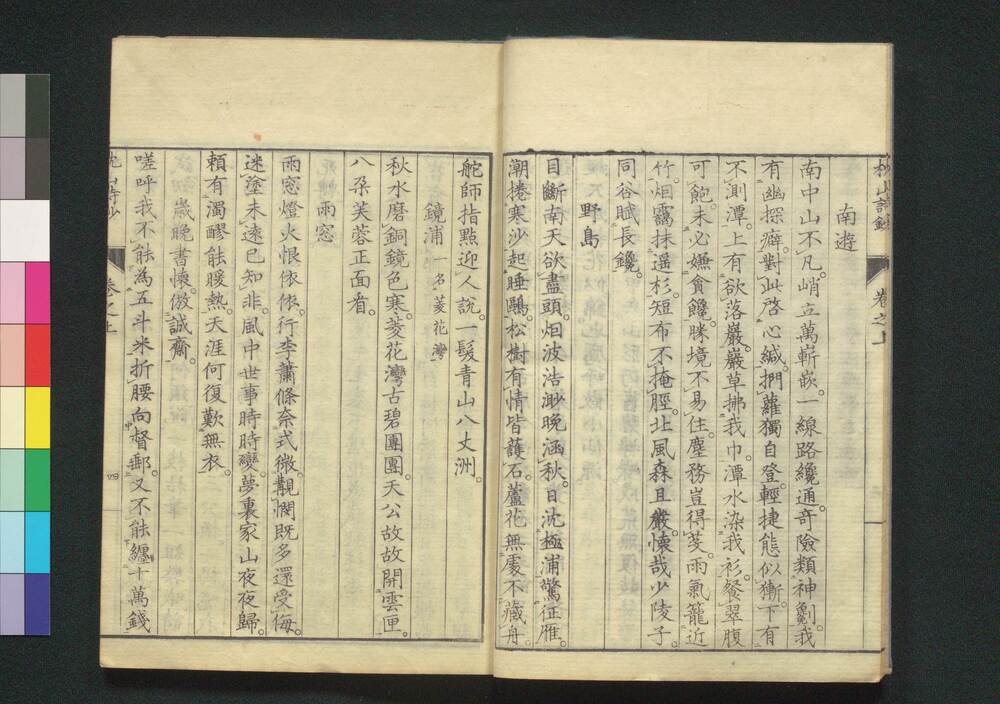 南遊
南中山不凡。峭立萬嶄嵌。一線路纔通。奇險類神劖。我
有幽探癖。對此啓心緘。捫蘿獨自登。輕捷態似獑。下有
不測潭。上有欲落巖。巖草拂我巾。潭水染我衫。餐翠腹
可飽。未必嫌貪饞。勝境不易住。塵務豈得芟。雨氣籠近
竹。烟靄抹遥杉。短布不掩脛。北風森且嚴。懷哉少陵子。
同谷賦長鑱。
野島
目斷南天欲盡頭。烟波浩渺晚涵秋。日沈極浦驚征雁。
潮捲寒沙起睡鷗。松樹有情皆護石。蘆花無處不藏舟。
舵師指點迎人說。一髮青山八丈洲。
鏡浦 一名菱花灣
秋水磨銅鏡色寒。菱花灣古碧團團。天公故故開雲匣。
八朶芙蓉正面看。
雨窓
雨窓燈火恨依依。行李蕭條奈式微。覯憫既多還受侮。
迷塗未遠已知非。風中世事時時變。夢裏家山夜夜歸。
頼有濁醪能暖熱。天涯何復歎無衣。
歲晚書懷。倣誠齋。
嗟呼我不能為五斗米折腰向督郵。又不能纏十萬錢
卷之上
四
卷之上